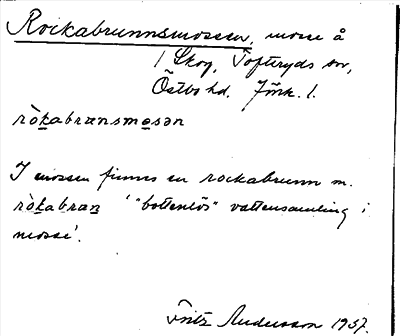 Rockabrunnsmossen, mosse å
1 Skog, Tofteryds sn,
Östbo hd. Jönk. l.
ròkabransmesən
I mossen finnes en rockabrunn m.
ròkabran ' "bottenlös" vattensamling i
mosse'.
Fritz Andersson 1937.